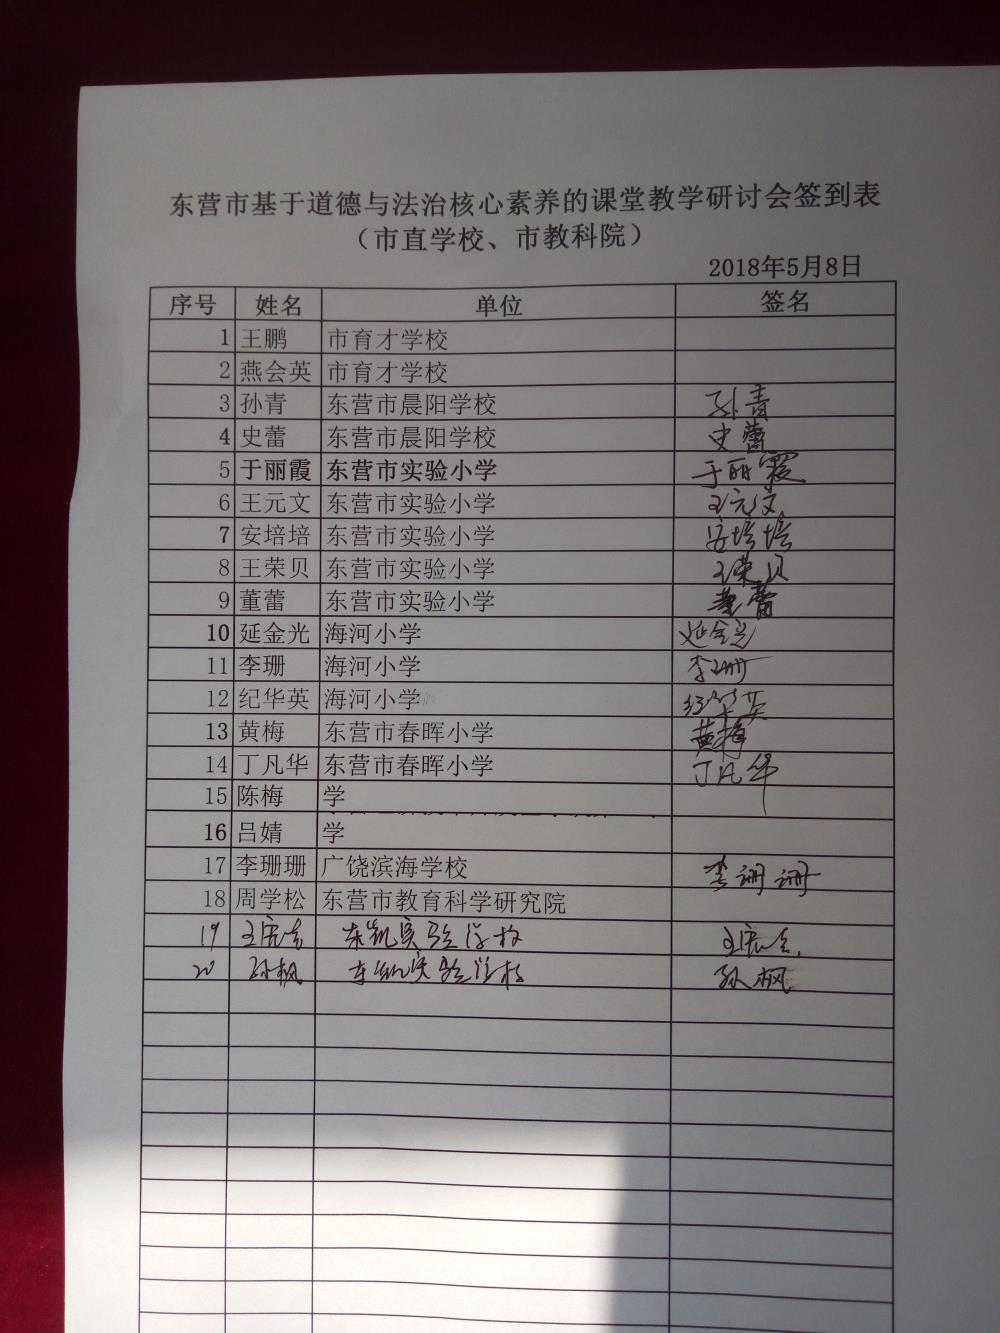 东营市基于道德与法治核心素养的课堂教学研讨会签到表
（市直学校、市教科院）
2018年5月8日
序号 姓名 单位 签名
1 王鹏 市育才学校
2 燕会英 市育才学校
3 孙青 东营市晨阳学校 孙青
4 史蕾 东营市晨阳学校 史蕾
5 于丽霞 东营市实验小学 于丽霞
6 王元文 东营市实验小学 王元文
7 安培培 东营市实验小学 安培培
8 王荣贝 东营市实验小学 王荣贝
9 董蕾 东营市实验小学 董蕾
10 延金光 海河小学 延金光
11 李珊 海河小学 李珊
12 纪华英 海河小学 纪华英
13 黄梅 东营市春晖小学 黄梅
14 丁凡华 东营市春晖小学 丁凡华
15 陈梅 学
16 吕婧 学
17 李珊珊 广饶滨海学校 李珊珊
18 周学松 东营市教育科学研究院
19 东凯实验学校
20 孙枫 东凯实验学校 孙枫